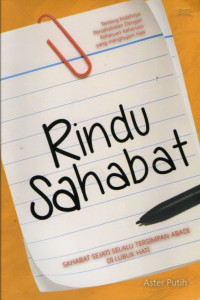 Tentang Indahnya
Persahabatan Dengan
Keharuan-keharuan
yang menghiasi hati
Rindu
Sahabat
SAHABAT SEJATI SELALU TERSIMPAN ABADI
DI LUBUK HATI
Aster Putih